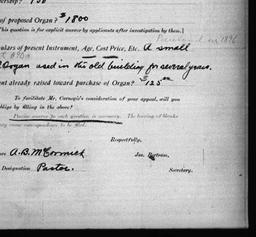 of proposed Organ? $1800
This question is for explicit answer by applicants after investigation by them.)
culars of present Instrument, Age, Cost Price, Etc. A small
Organ used in the old building for several years.
ent already raised toward purchase of Organ? $125.00
To facilitate Mr. Carnegie's consideration of your appeal, will you
oblige by filling in the above?
Precise answer to each question is necessary. The leaving of blanks
Respectfully,
A.B. McCormick
Jas. Bertram,
Designation Pastor.
Secretary.